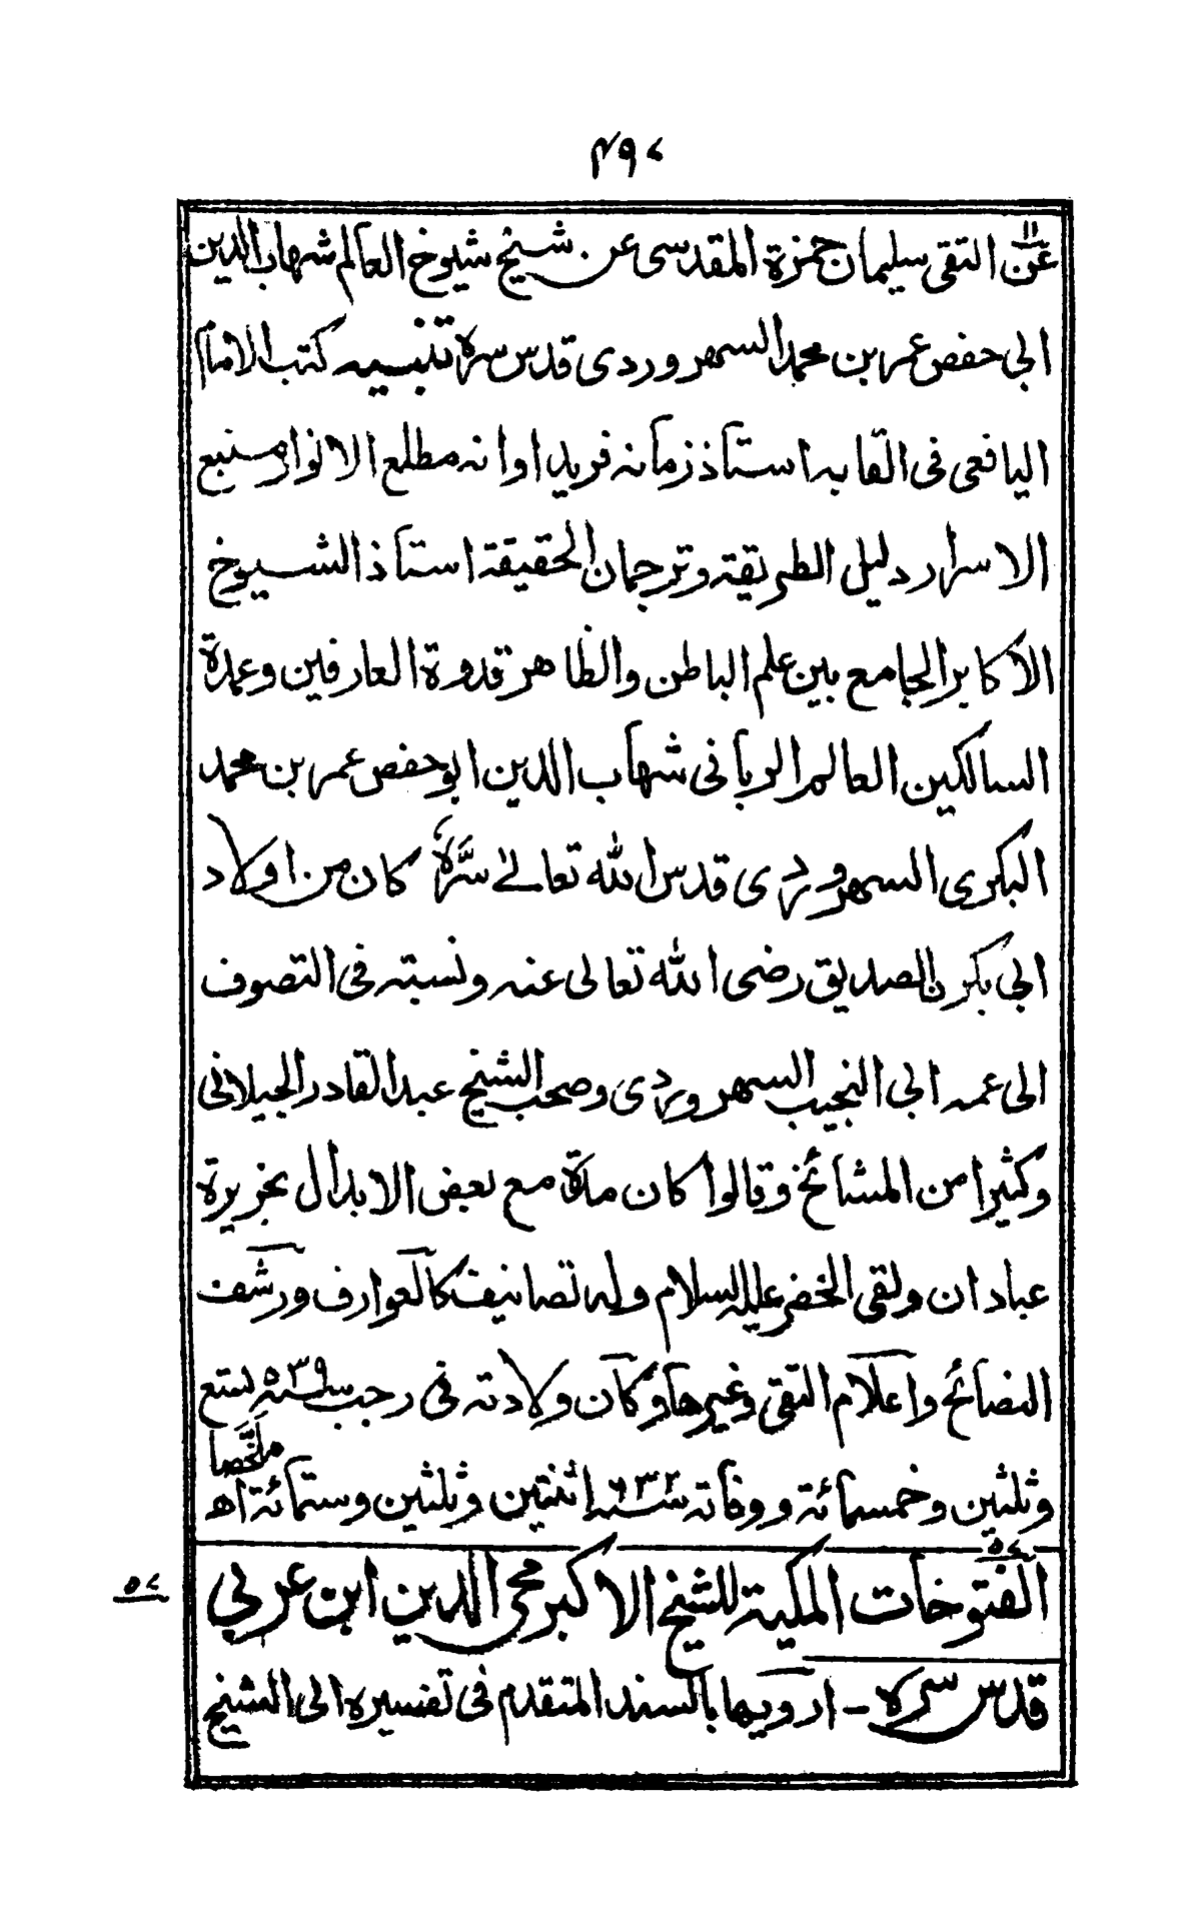 ٤٩٠
عن التقى سليمان حمزة المقدسى عن شيخ شيوخ العالم شهاب الدين
ابى حفص عمر بن محمد السهروردى قدس سره تنبيه كتب الامام
اليافعى فى القابه استاذ زمانه فريد اوانه مطلع الانوار منبع
الاسرار دليل الطريقة وترجمان الحقيقة استاذ الشيوخ
الاكابر الجامع بين علم الباطن والظاهر قدوة العارفين وعمدة
السالكين العالم الربانى شهاب الدين ابو حفص عمر بن محمد
البكرى السهروردى قدس الله تعالى سره كان من اولاد
ابى بكر ن الصديق رضى الله تعالى عنه ونسبته فى التصوف
الى عمه ابى النجيب السهروردى وصحب الشيخ عبد القادر الجيلانى
وكثيرا من المشائخ وقالوا كان مدة مع بعض الابدال بجزيرة
عبادان ولقى الخضر عليه السلام وله تصانيف كالعوارف ورشف
النصائح واعلام التقى وغيرها وكان ولادته فى رجب سنة ٥٣٩ تسع
وثلثين وخمسمائة ووفاته سنة ٦٣٢ اثنتين وثلثين وستمائة اھ ملخصا
الفتوحات المكية للشيخ الاكبر محى الدين ابن عربى
قدس سره - ارويها بالسند المتقدم فى تفسيره الى الشيخ